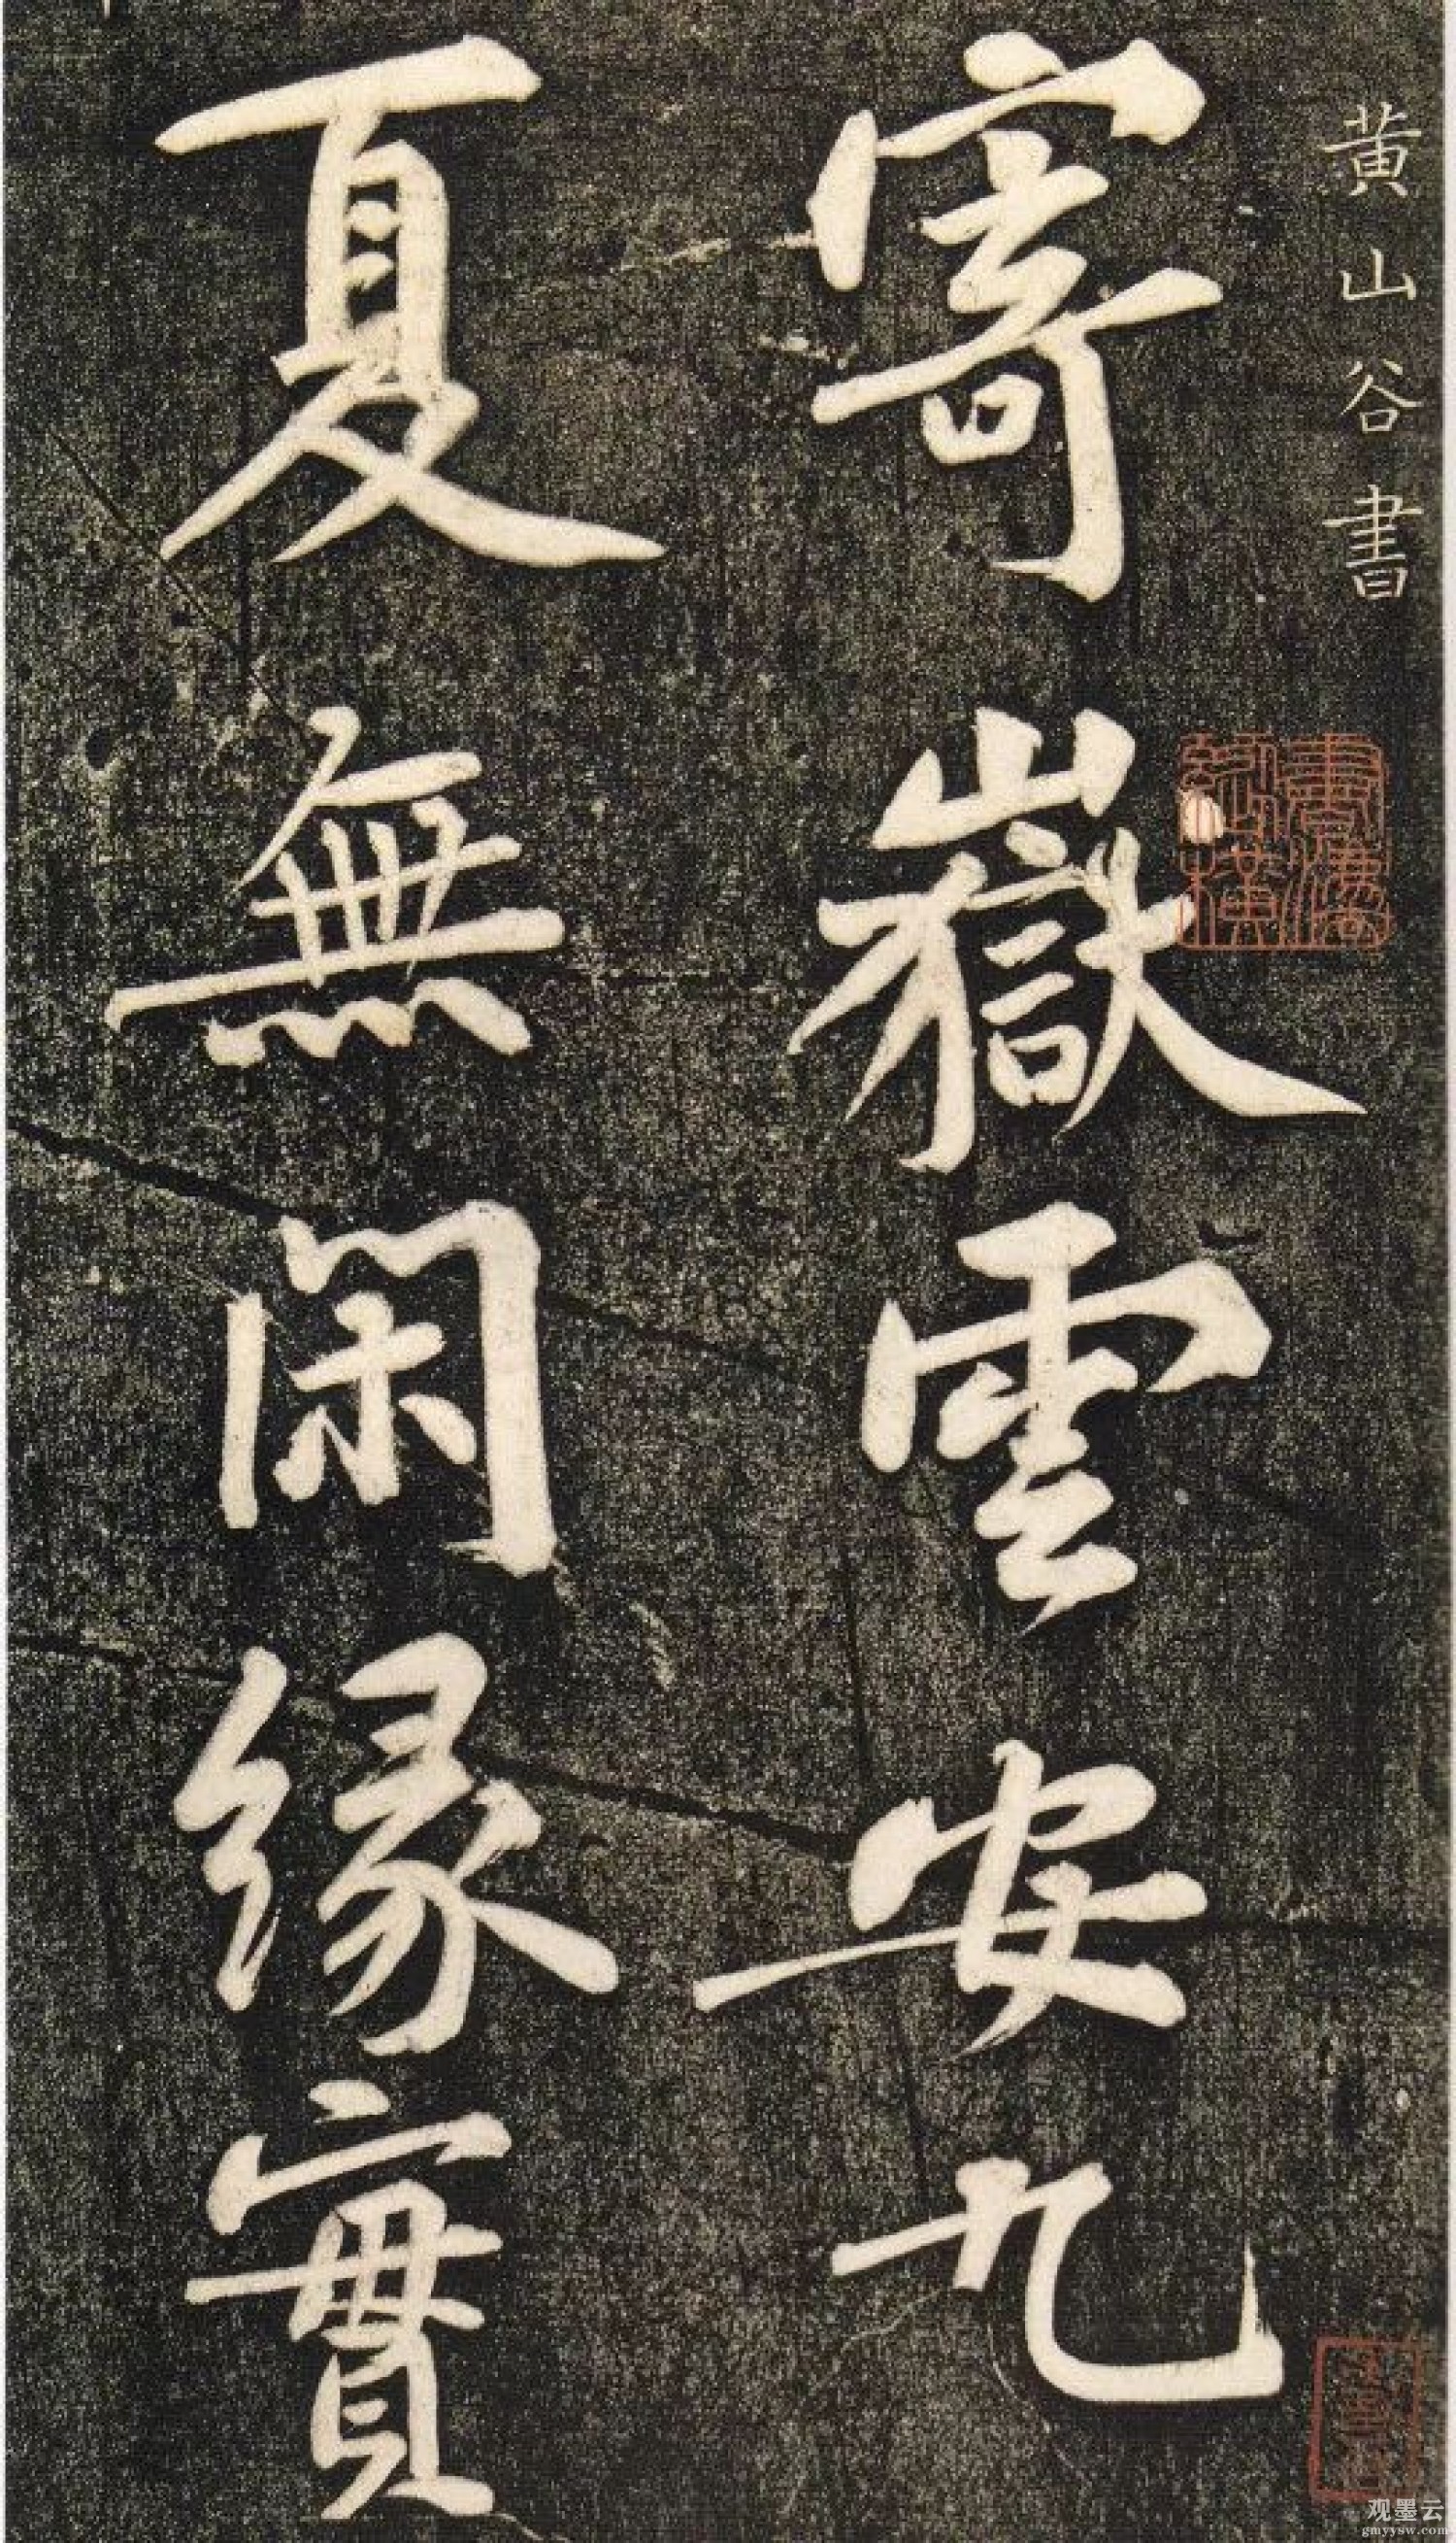 黄山谷書
寄嶽雲安九
夏無閑縁實
观墨云
gmyysw.com